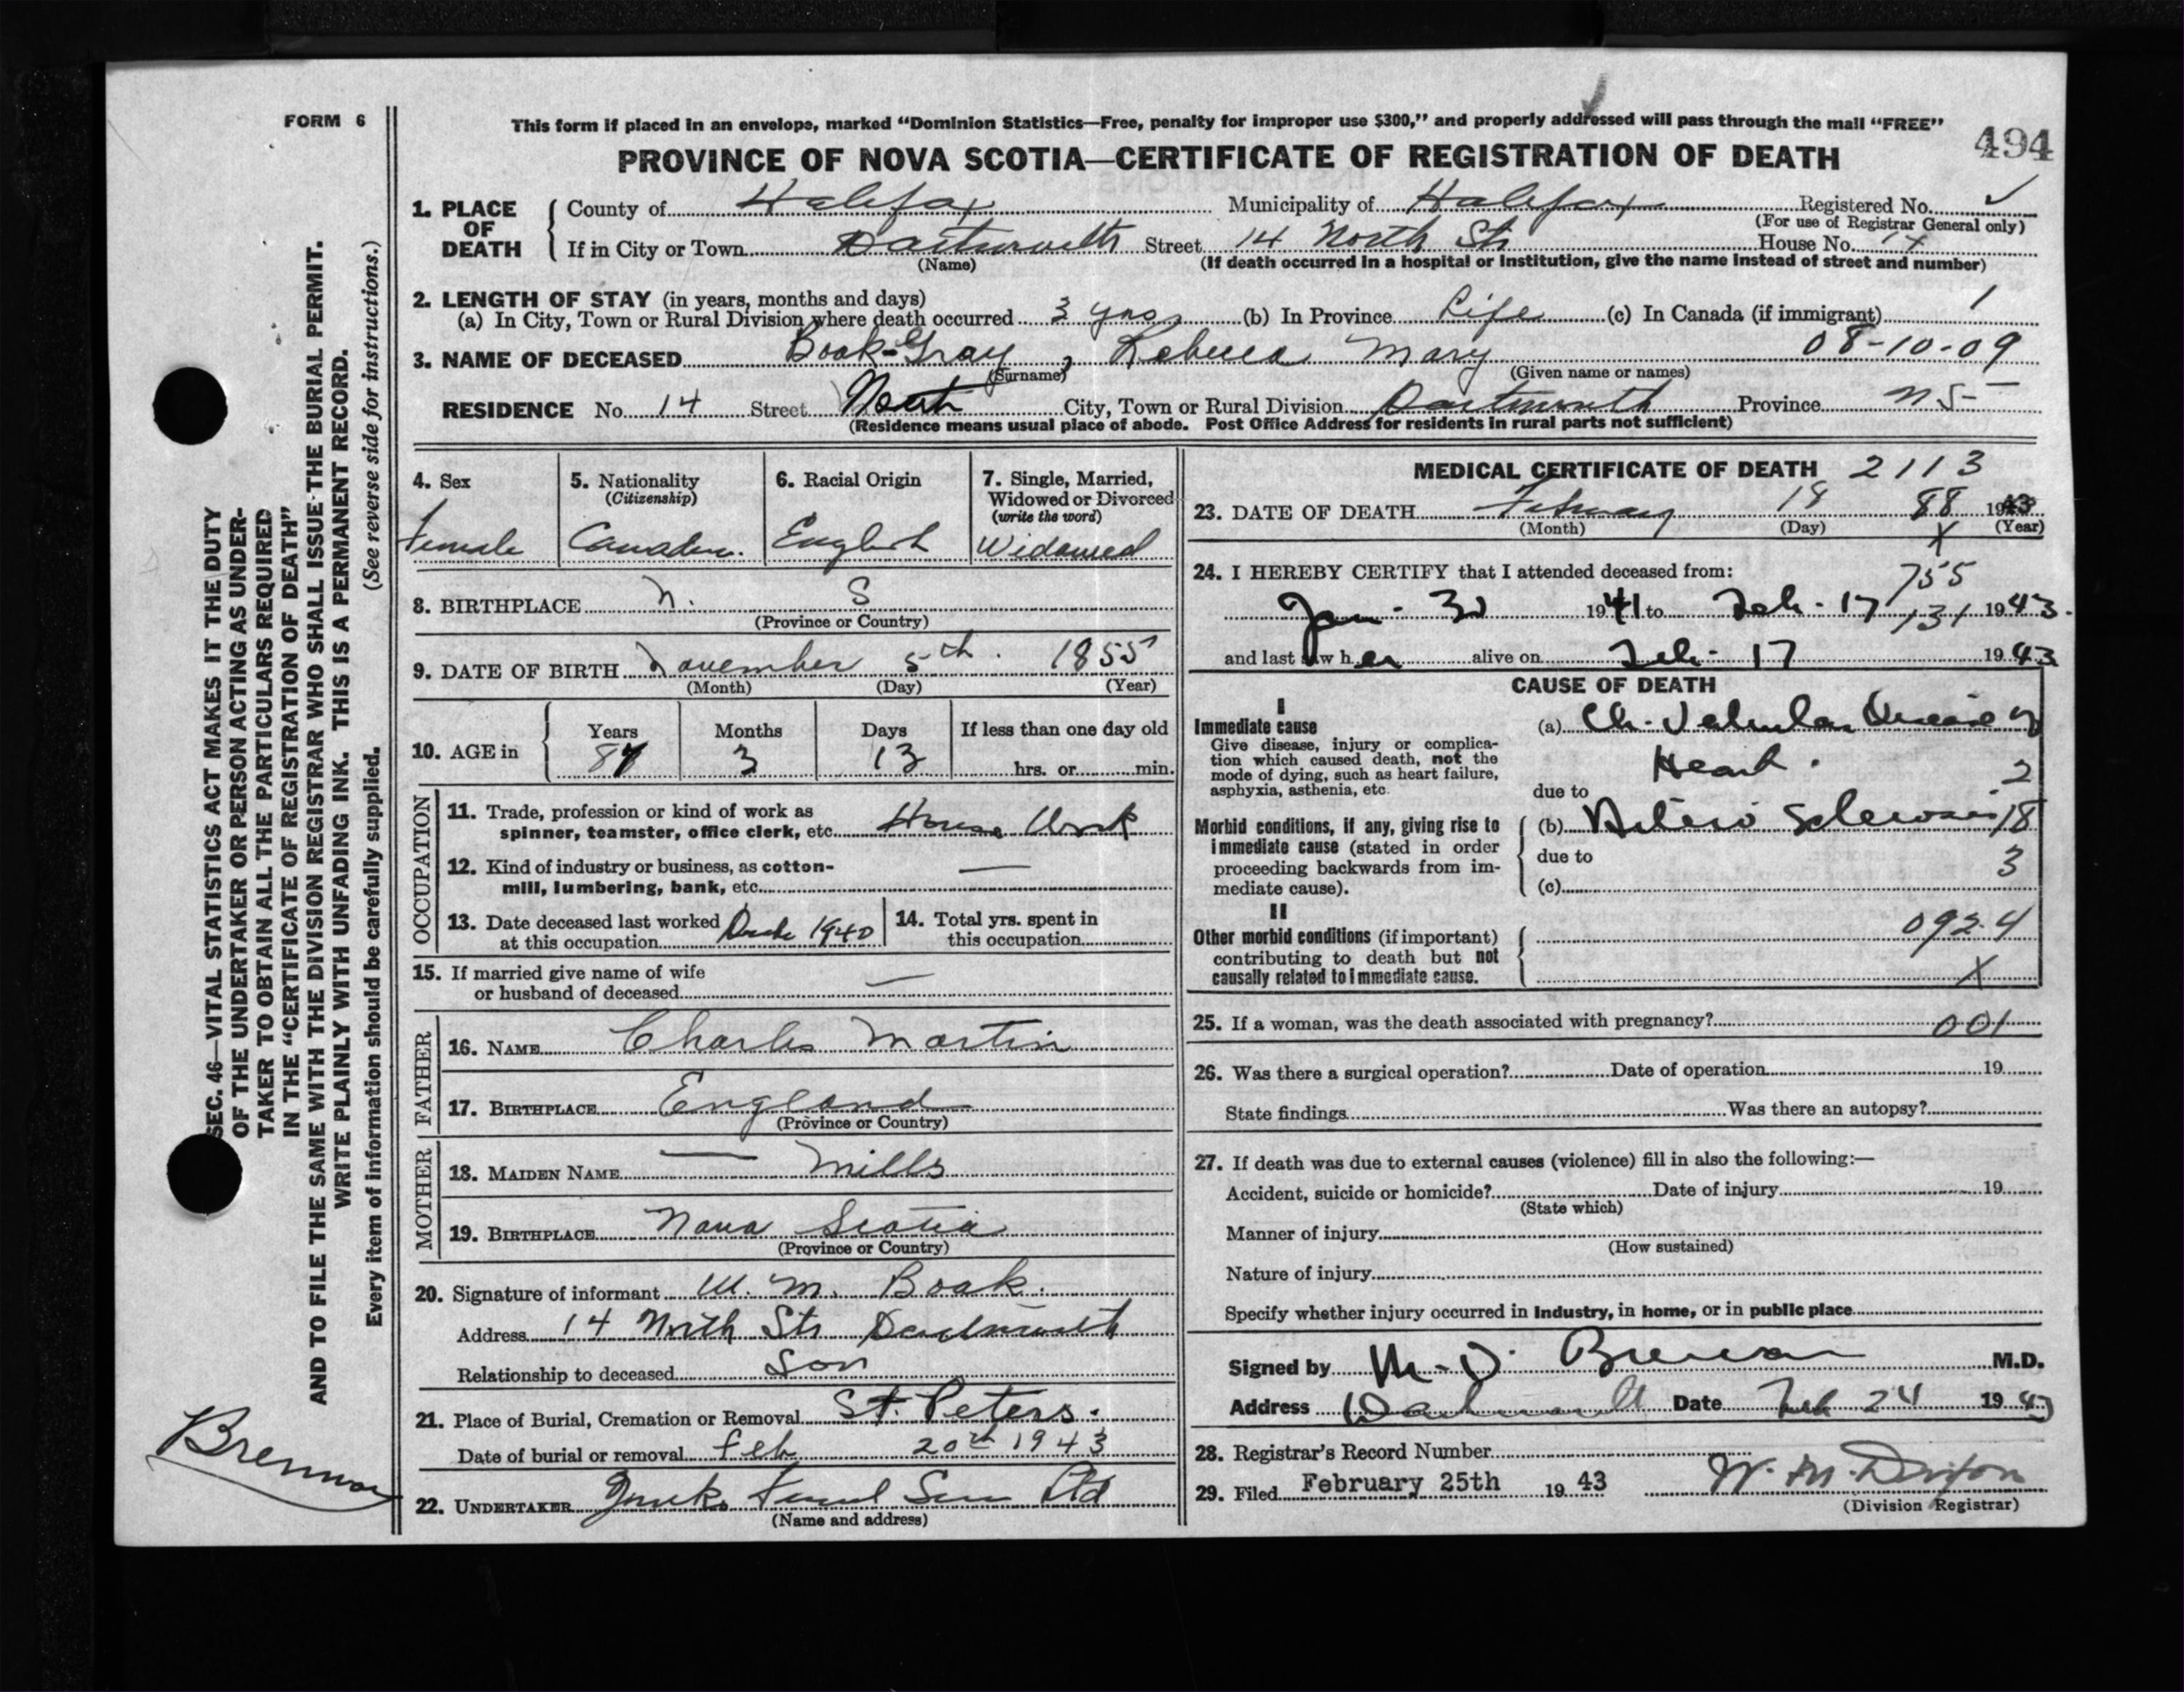 FORM 6
This form if placed in an envelope, marked “Dominion Statistics—Free, penalty for improper use $300,” and properly addressed will pass through the mail “FREE”
494
PROVINCE OF NOVA SCOTIA—CERTIFICATE OF REGISTRATION OF DEATH
1. PLACE OF DEATH
County of Halifax Municipality of Halifax Registered No.
(For use of Registrar General only)
If in City or Town Dartmouth Street 14 North St House No. 14
(Name) (If death occurred in a hospital or institution, give the name instead of street and number)
2. LENGTH OF STAY (in years, months and days)
(a) In City, Town or Rural Division where death occurred 3 yrs (b) In Province Life (c) In Canada (if immigrant) 1
3. NAME OF DECEASED Boak-Gray, Rebecca Mary 08-10-09
(Surname) (Given name or names)
RESIDENCE No. 14 Street North City, Town or Rural Division Dartmouth Province NS
(Residence means usual place of abode. Post Office Address for residents in rural parts not sufficient)
4. Sex
Female
5. Nationality
(Citizenship)
Canadian
6. Racial Origin
English
7. Single, Married,
Widowed or Divorced
(write the word)
Widowed
8. BIRTHPLACE N. S
(Province or Country)
9. DATE OF BIRTH November 5th 1855
(Month) (Day) (Year)
10. AGE in
Years Months Days If less than one day old
87 3 13 hrs. or min.
OCCUPATION
11. Trade, profession or kind of work as
spinner, teamster, office clerk, etc. House Work
12. Kind of industry or business, as cotton-
mill, lumbering, bank, etc. —
13. Date deceased last worked
at this occupation 1940
14. Total yrs. spent in
this occupation
15. If married give name of wife
or husband of deceased —
FATHER
16. NAME Charles Martin
17. BIRTHPLACE England
(Province or Country)
MOTHER
18. MAIDEN NAME — Mills
19. BIRTHPLACE Nova Scotia
(Province or Country)
20. Signature of informant W. M. Boak.
Address 14 North St Dartmouth
Relationship to deceased Son
21. Place of Burial, Cremation or Removal St. Peters.
Date of burial or removal Feb 20th 1943
22. UNDERTAKER Ltd
(Name and address)
MEDICAL CERTIFICATE OF DEATH 2113
23. DATE OF DEATH February 18 88 1943
(Month) (Day) X (Year)
24. I HEREBY CERTIFY that I attended deceased from:
755
Jan - 30 1941 to Feb - 17 131 1943.
and last saw her alive on Feb - 17 1943
CAUSE OF DEATH
I
Immediate cause
Give disease, injury or complica-
tion which caused death, not the
mode of dying, such as heart failure,
asphyxia, asthenia, etc.
(a) Ch. Valvular Disease of
Heart. 2
due to
Morbid conditions, if any, giving rise to
immediate cause (stated in order
proceeding backwards from im-
mediate cause).
(b) Arterio Sclerosis 18
due to 3
(c)
II
Other morbid conditions (if important)
contributing to death but not
causally related to immediate cause.
092.4
X
25. If a woman, was the death associated with pregnancy? 001
26. Was there a surgical operation? Date of operation 19
State findings Was there an autopsy?
27. If death was due to external causes (violence) fill in also the following:—
Accident, suicide or homicide? Date of injury 19
(State which)
Manner of injury
(How sustained)
Nature of injury
Specify whether injury occurred in Industry, in home, or in public place
Signed by M. D. Brennan M.D.
Address Dartmouth Date Feb 24 1943
28. Registrar's Record Number
29. Filed February 25th 1943 W. M. Dixon
(Division Registrar)
SEC. 46—VITAL STATISTICS ACT MAKES IT THE DUTY
OF THE UNDERTAKER OR PERSON ACTING AS UNDER-
TAKER TO OBTAIN ALL THE PARTICULARS REQUIRED
IN THE “CERTIFICATE OF REGISTRATION OF DEATH”
AND TO FILE THE SAME WITH THE DIVISION REGISTRAR WHO SHALL ISSUE THE BURIAL PERMIT.
WRITE PLAINLY WITH UNFADING INK. THIS IS A PERMANENT RECORD.
Every item of information should be carefully supplied. (See reverse side for instructions.)
Brennan